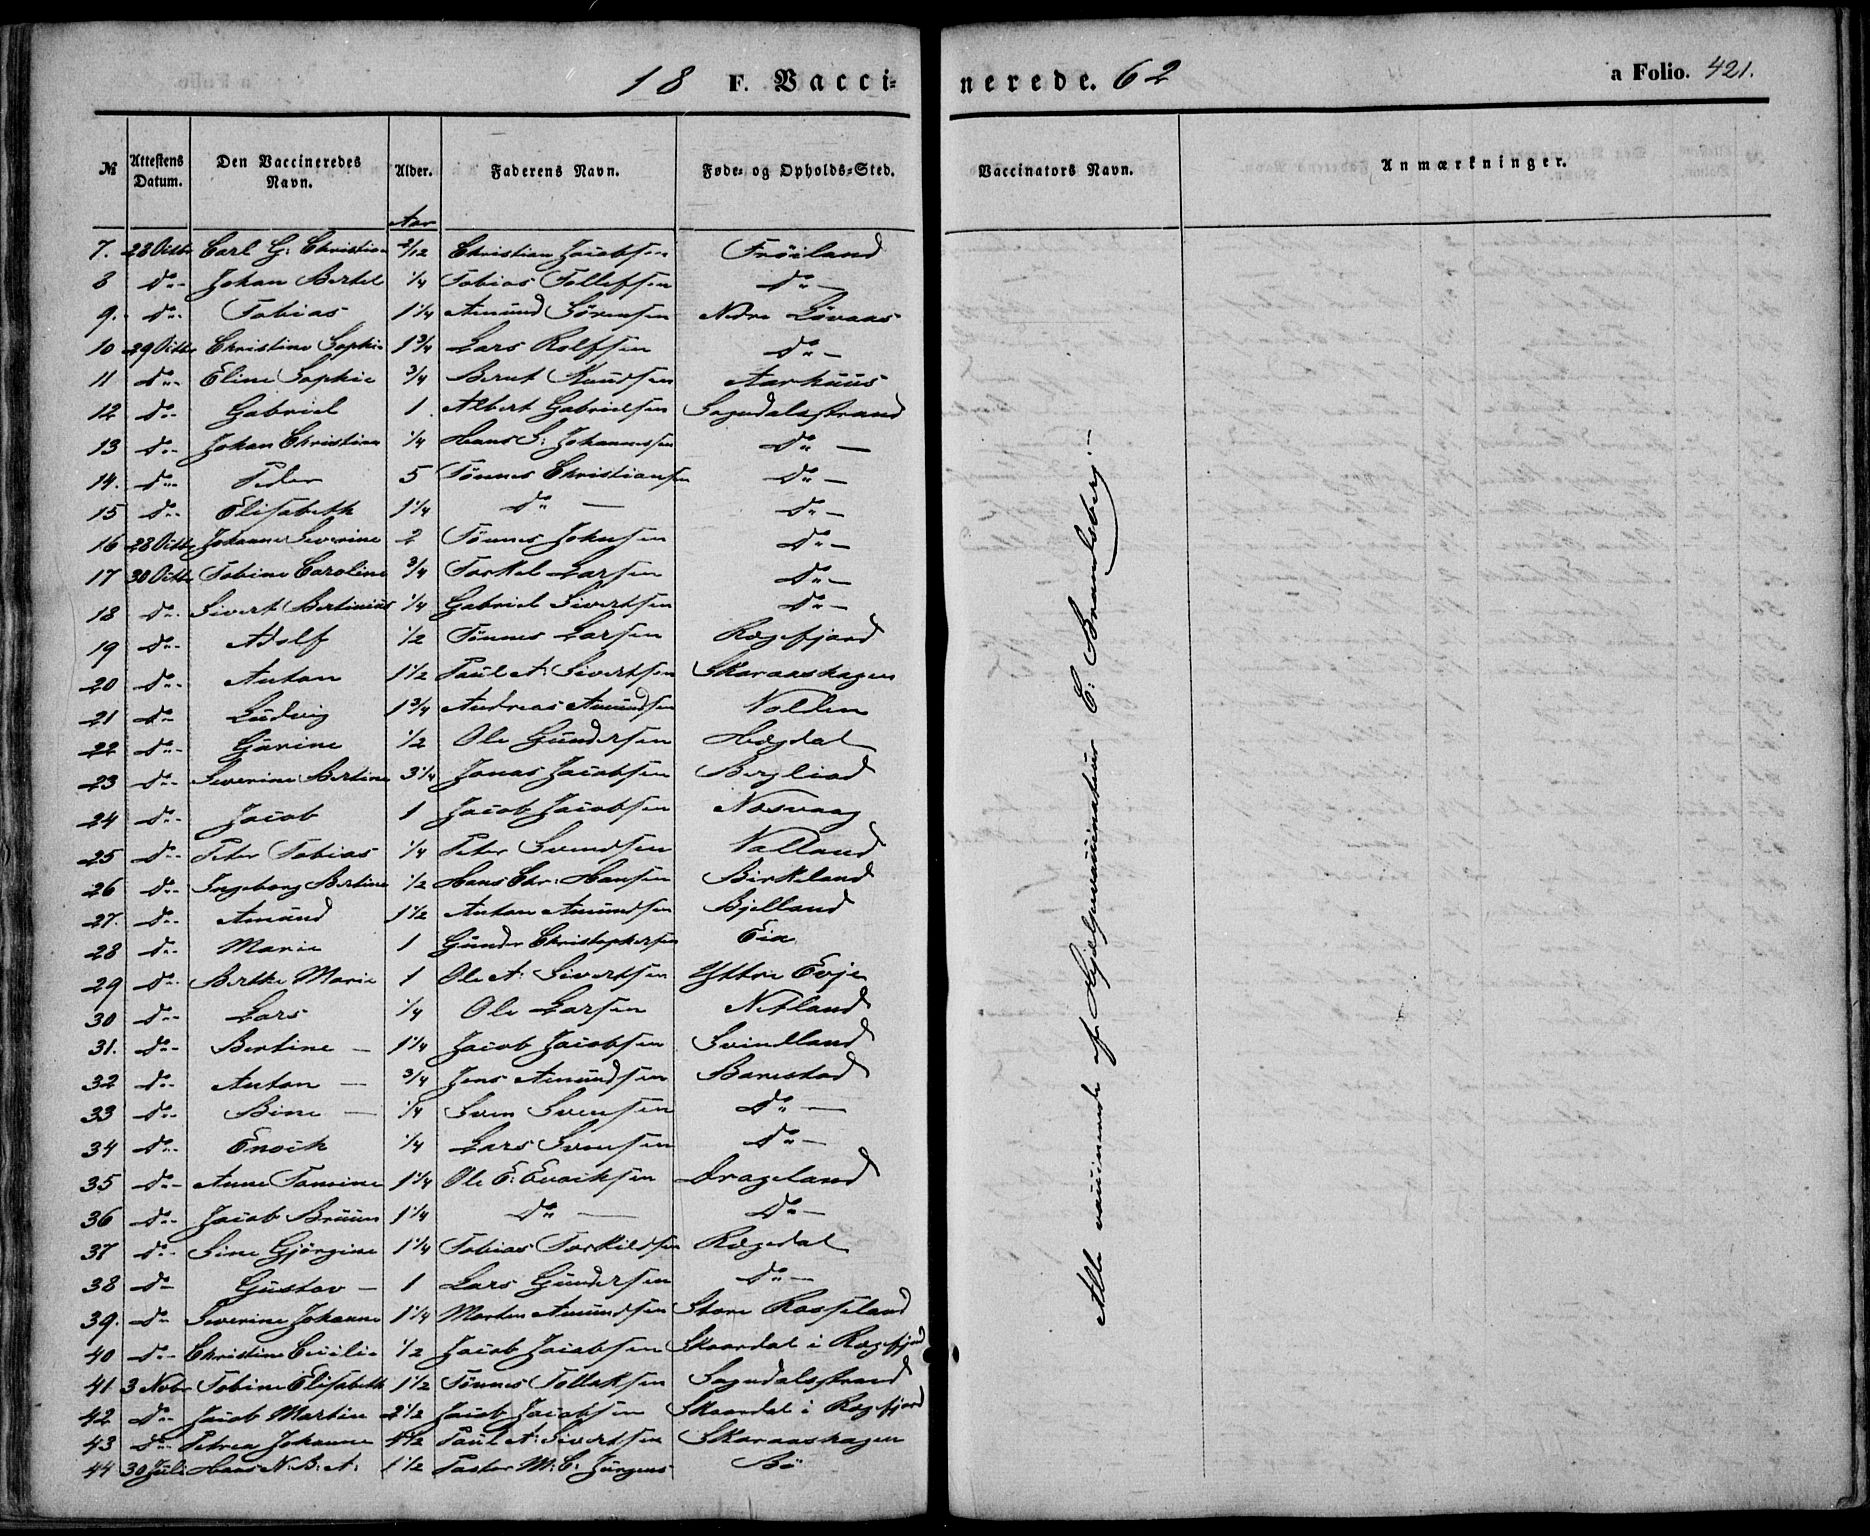 18 F. Vaccinerede. 62 a Folio. 421.
№ Attestens Datum. Den Vaccineredes Navn. Alder. Faderens Navn. Føde- og Opholds-Sted. Vaccinators Navn. Anmærkninger.
Aar
7. 28 Octbr Carl G: Christian 2/12 Christian Jacobsen Frøiland
8 do Johan Bertel 1/4 Tobias Tollefsen do
9. do Tobias 1 1/4 Amund Sørensen Nedre Løvaas
10 29 Octbr Christine Sophie 1 3/4 Lars Rolfsen do
11 do Eline Sophie 3/4 Bernt Knudsen Aarhuus
12 do Gabriel 1 Albert Gabrielsen Sogndalsstrand
13 do Johan Christian 1/4 Hans S: Johannessen do
14. do Peder 5 Tønnes Christiansen do
15 do Elisabeth 1 1/4 do do
16 28 Octb Johanne Severine 2 Tønnes Johnsen do
17 30 Octb Tobine Caroline 3/4 Torkel Larsen do
18 do Sivert Bertinius 1/4 Gabriel Sivertsen do
19 do Adolf 1/2 Tønnes Larsen Rægefjord
20 do Anton 1 1/2 Paul A: Sivertsen Skaraashagen
21 do Ludvig 1 3/4 Andreas Amundsen Nolden
22 do Gurine 1/2 Ole Gundersen Hægdal
23 do Severine Bertine 3 1/4 Jonas Jacobsen Bergliod
24 do Jacob 1 Jacob Jacobsen Nosvaag
25 do Peter Tobias 1/4 Peter Svendsen Valland
26 do Ingeborg Bertine 1/2 Hans Chr: Hansen Birkeland
27. do Amund 1 1/2 Anton Amundsen Bjelland
28 do Marie 1 Gunder Christophersen Eia
29 do Berthe Marie 1 Ole A: Sivertsen Yttre Evje
30 do Lars 1/4 Ole Larsen Netland
31. do Bertine 1 1/4 Jacob Jacobsen Svindland
32 do Anton 3/4 Jens Amundsen Barestad
33 do Bine 1/4 Sven Svensen do
34 do Enoch 1/4 Lars Svensen do
35 do Anne Tomine 1 1/4 Ole E: Evoiksen Drageland
36 do Jacob Bruun 1 1/4 do do
37 do Sine Gjørgine 1 1/4 Tobias Torkildsen Rægedal
38 do Gustav 1 Lars Gundersen do
39. do Severine Johanne 1 1/4 Morten Amundsen Store Rosseland
40 do Christine Cecilie 1/2 Jacob Jacobsen Skaardal i Rægefjord
41 3 Novbr Tobine Elisabeth 1 1/2 Tønnes Tollaksen Sogndalsstrand
42 do Jacob Martin 2 1/2 Jacob Jacobsen Skaardal i Rægefjord
43 do Petrea Johanne 4 1/2 Paul A: Sivertsen Skaraashagen
44 30 Juli Hans N: B: A: 1 1/2 Pastor M: C: Jürgens Bö
Alle vaccinerede af Hjelpevaccinateur C: Brandsberg.